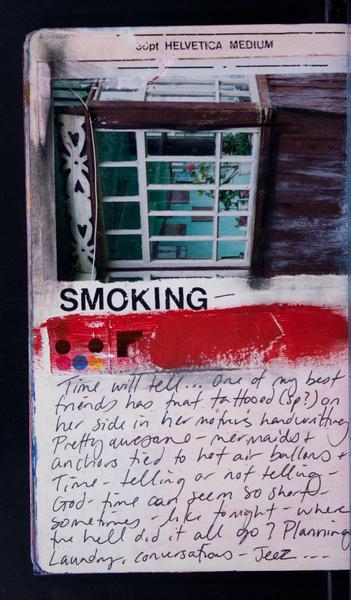 36pt HELVETICA MEDIUM
SMOKING
Time will tell... One of my best
friends has that tattooed (sp?) on
her side in her mothers handwriting
Pretty awesome - mermaids +
anchors tied to hot air ballons +
Time - telling or not telling -
God - time can seem so short -
sometimes - like tonight - where
the hell did it all go? Planning
Laundry, conversations - Jeez ---